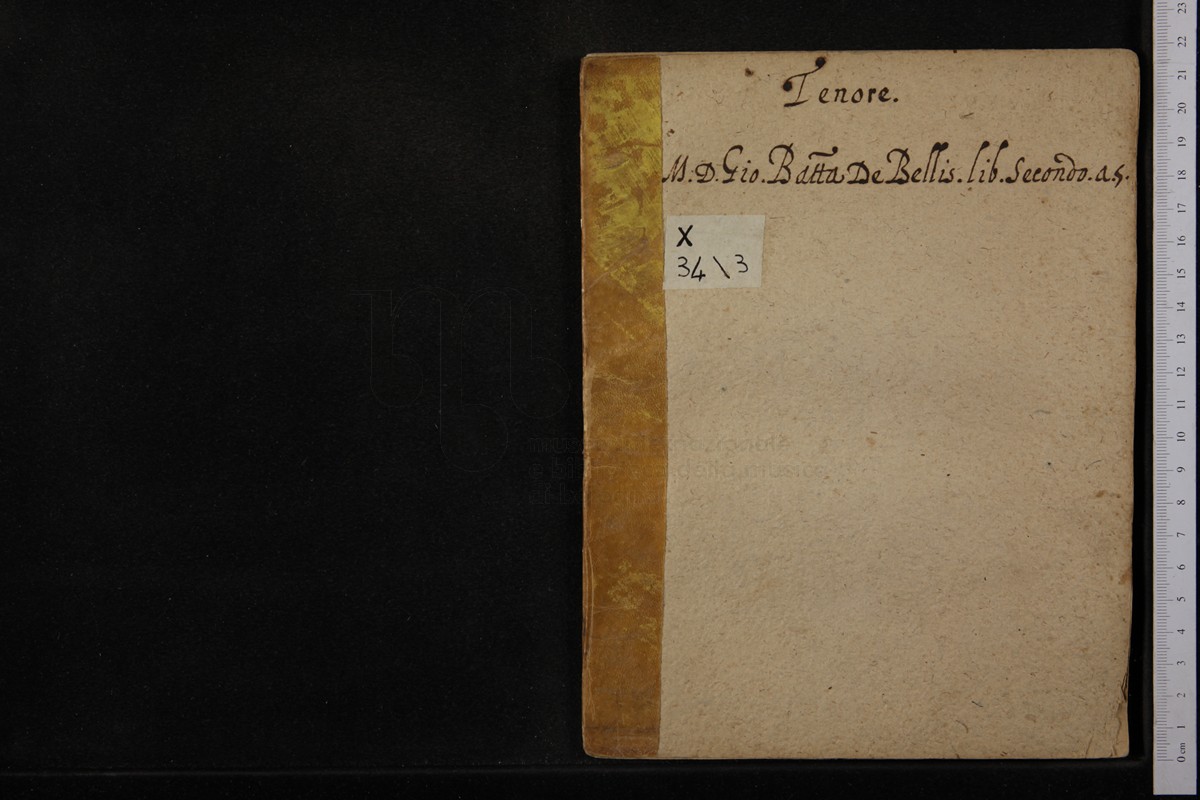 Tenore.
M. D. Gio. Batta De Bellis. lib. Secondo. a 5.
X
34\3
23
22
21
20
19
18
17
16
15
14
13
12
11
10
9
8
7
6
5
4
3
2
1
0 cm